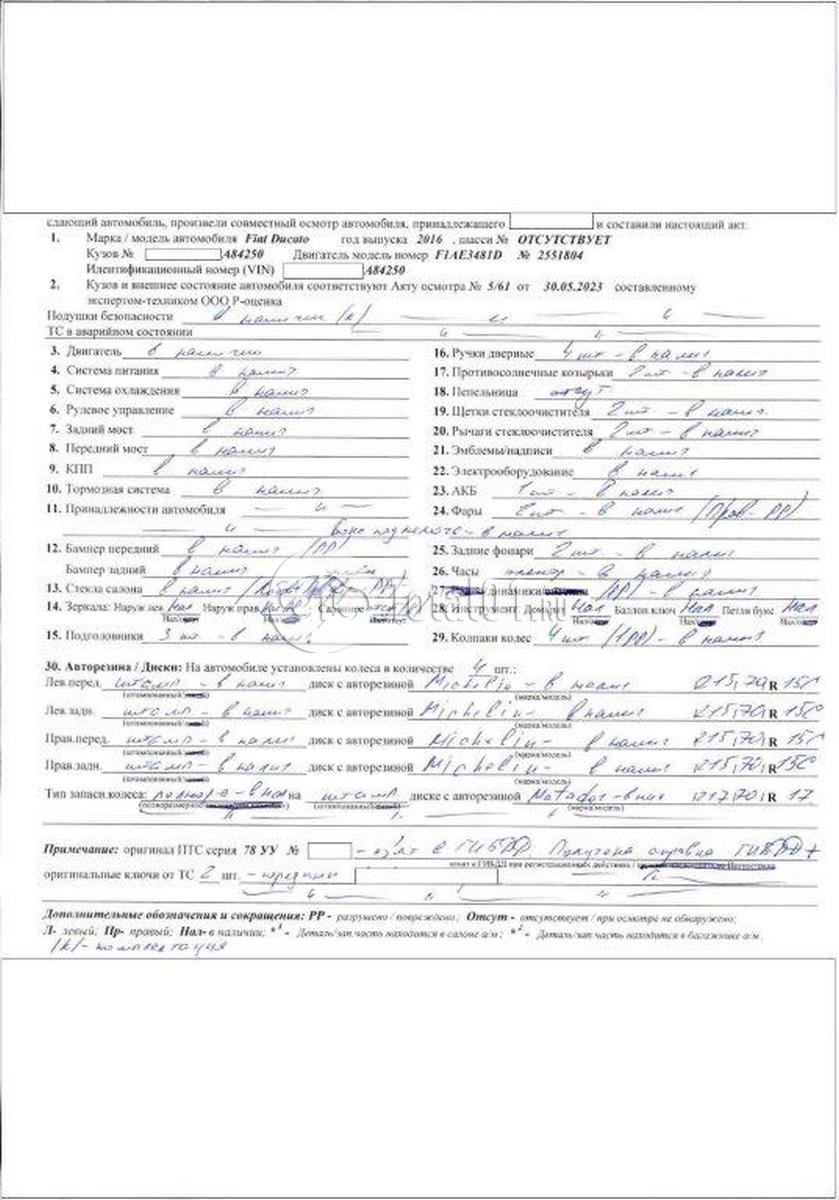 сдающий автомобиль, произвели совместный осмотр автомобиля, принадлежащего и составили настоящий акт.
1. Марка / модель автомобиля Fiat Ducato год выпуска 2016 , шасси № ОТСУТСТВУЕТ
Кузов № A84250 Двигатель модель номер F1AE3481D № 2551804
Идентификационный номер (VIN) A84250
2. Кузов и внешнее состояние автомобиля соответствуют Акту осмотра № 5/61 от 30.05.2023 составленному
экспертом-техником ООО Р-оценка
Подушки безопасности в наличии (к)
ТС в аварийном состоянии
3. Двигатель в наличии
4. Система питания в налич
5. Система охлаждения в налич
6. Рулевое управление в налич
7. Задний мост в налич
8. Передний мост в налич
9. КПП в налич
10. Тормозная система в налич
11. Принадлежности автомобиля
12. Бампер передний в налич (РР)
Бампер задний в налич
13. Стекла салона в налич
14. Зеркала: Наруж лев Нал Наруж прав Салонное
15. Подголовники 3 шт - в налич
16. Ручки дверные 4 шт - в налич
17. Противосолнечные козырьки 2 шт - в налич
18. Пепельница отсут
19. Щетки стеклоочистителя 2 шт - в налич
20. Рычаги стеклоочистителя 2 шт - в налич
21. Эмблемы/надписи в налич
22. Электрооборудование в налич
23. АКБ 1 шт - в налич
24. Фары 2 шт - в налич (Прав - РР)
25. Задние фонари 2 шт - в налич
26. Часы - в налич
27. динамики (РР) - в налич
28. Инструмент: Домкрат Нал Баллон ключ Нал Петли букс Нал
29. Колпаки колес 4 шт (1РР) - в налич
30. Авторезина / Диски: На автомобиле установлены колеса в количестве 4 шт.:
Лев.перед. штамп - в налич диск с авторезиной Michelin - в налич 215,70 R 15C
Лев.задн. штамп - в налич диск с авторезиной Michelin - в налич 215,70 R 15C
Прав.перед. штамп - в налич диск с авторезиной Michelin - в налич 215,70 R 15C
Прав.задн. штамп - в налич диск с авторезиной Michelin - в налич 215,70, R 15C
Тип запасн.колеса: на штамп диске с авторезиной Matador - в нал R 17
Примечание: оригинал ПТС серия 78 УУ № - взят в ГИБДД. Получена справка ГИБДД
оригинальные ключи от ТС 2 шт.
Дополнительные обозначения и сокращения: РР - разрушено / повреждено; Отсут - отсутствует / при осмотре не обнаружено;
Л- левый; Пр- правый; Нал- в наличии; *1 - Деталь/зап.часть находится в салоне а/м; *2 - Деталь/зап.часть находится в багажнике а/м.
/к/- комплектация
Total01.ru